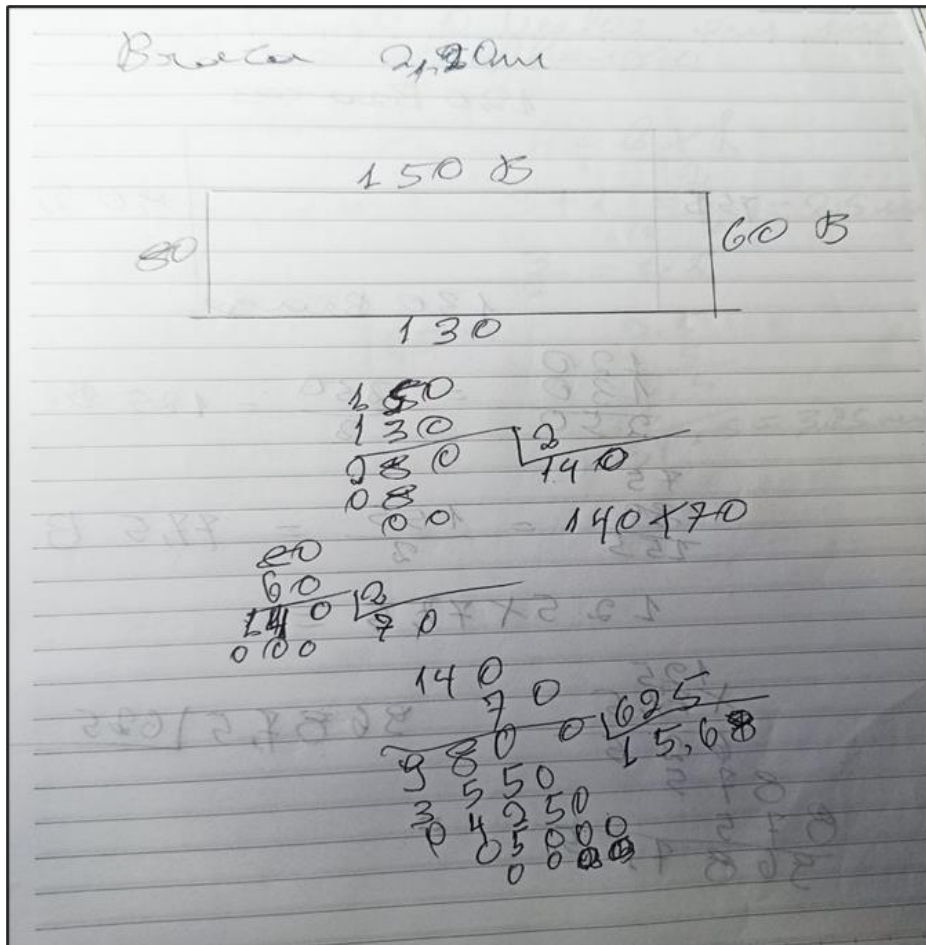 Braça 2,20m
150 B
80
60 B
130
150
130
280 2
08 140
00
140x70
80
60
140 2
000 70
140
70
9800 625
3550 15,68
04250
05000
0000